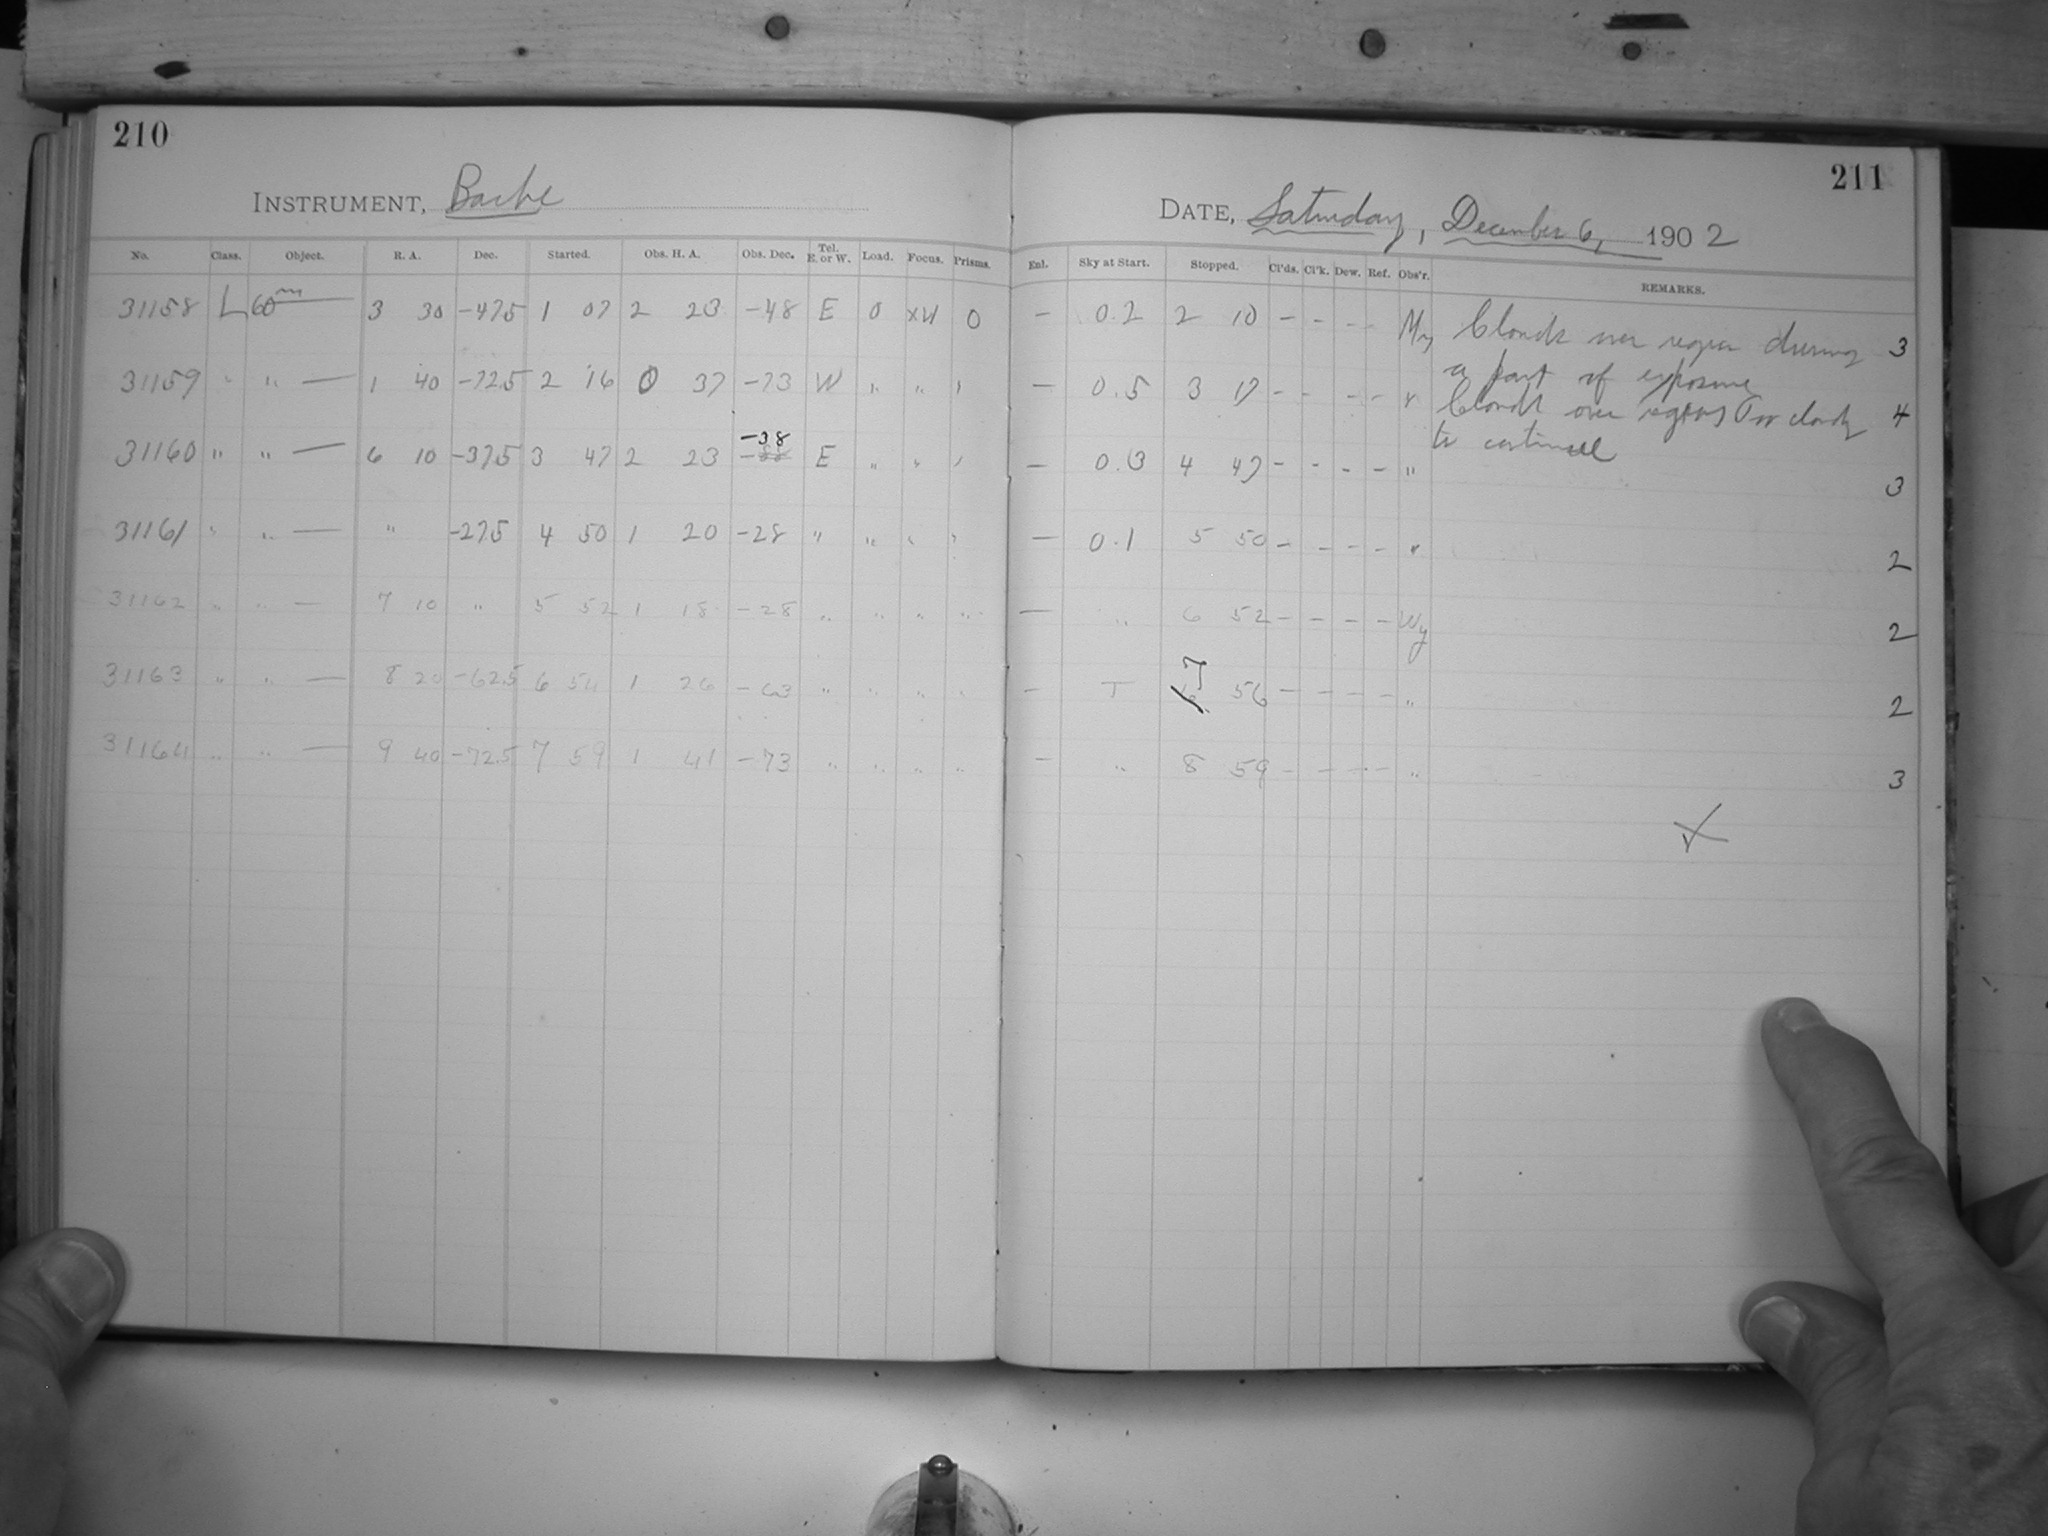 210
INSTRUMENT, Bache
No. Class. Object. R. A. Dec. Started. Obs. H. A. Obs. Dec. Tel. E. or W. Load. Focus. Prisms.
31158 L 60m — 3 30 -47.5 1 07 2 23 -48 E 0 XU 0
31159 " " — 1 40 -72.5 2 16 0 37 -73 W " " "
31160 " " — 6 10 -37.5 3 47 2 23 -38 E " " "
31161 " " — " -27.5 4 50 1 20 -28 " " " "
31162 " " — 7 10 " 5 52 1 18 -28 " " " "
31163 " " — 8 20 -62.5 6 54 1 26 -63 " " " "
31164 " " — 9 40 -72.5 7 59 1 41 -73 " " " "
211
DATE, Saturday, December 6, 1902
Enl. Sky at Start. Stopped. Cl'ds. Cl'k. Dew. Ref. Obs'r. REMARKS.
— 0.2 2 10 - - - - My Clouds over region during 3
a part of exposure
— 0.5 3 17 - - - - " Clouds over region Too cloudy 4
to continue
— 0.3 4 47 - - - - " 3
— 0.1 5 50 - - - - " 2
— " 6 52 - - - - Wy 2
— T 7 56 - - - - " 2
— " 8 59 - - - - " 3